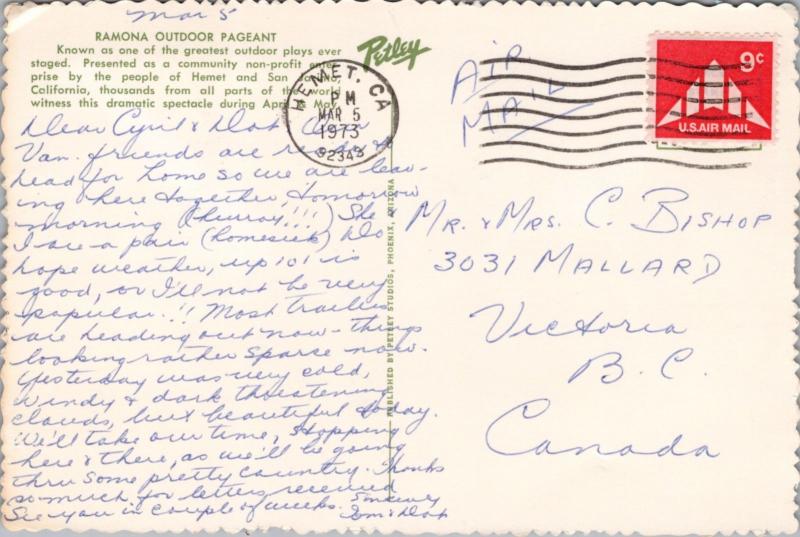 Mar 5
RAMONA OUTDOOR PAGEANT
Known as one of the greatest outdoor plays ever
staged. Presented as a community non-profit enter-
prise by the people of Hemet and San
California, thousands from all parts of the world
witness this dramatic spectacle during April & May.
Petley
Dear Cyril & Dot
Van. friends are ready to
head for home so we are leav-
ing here together, tomorrow
morning (hurray!!!) She &
I are a pair (homesick) Do
hope weather, up 101 is
good, or I'll not be very
popular!! Most trailers
are heading out now - things
looking rather sparse now.
Yesterday was very cold,
windy & dark threatening
clouds, but beautiful today.
We'll take our time, stopping
here & there, as we'll be going
thru some pretty country. Thanks
so much for letters received
See you in couple of weeks. Sincerely
Tom & Dot
PUBLISHED BY PETLEY STUDIOS, PHOENIX, ARIZONA
HEMET, CA
PM
MAR 5
1973
92343
AIR
MAIL
9¢
U.S. AIR MAIL
MR. & MRS. C. BISHOP
3031 MALLARD
Victoria
B. C.
Canada